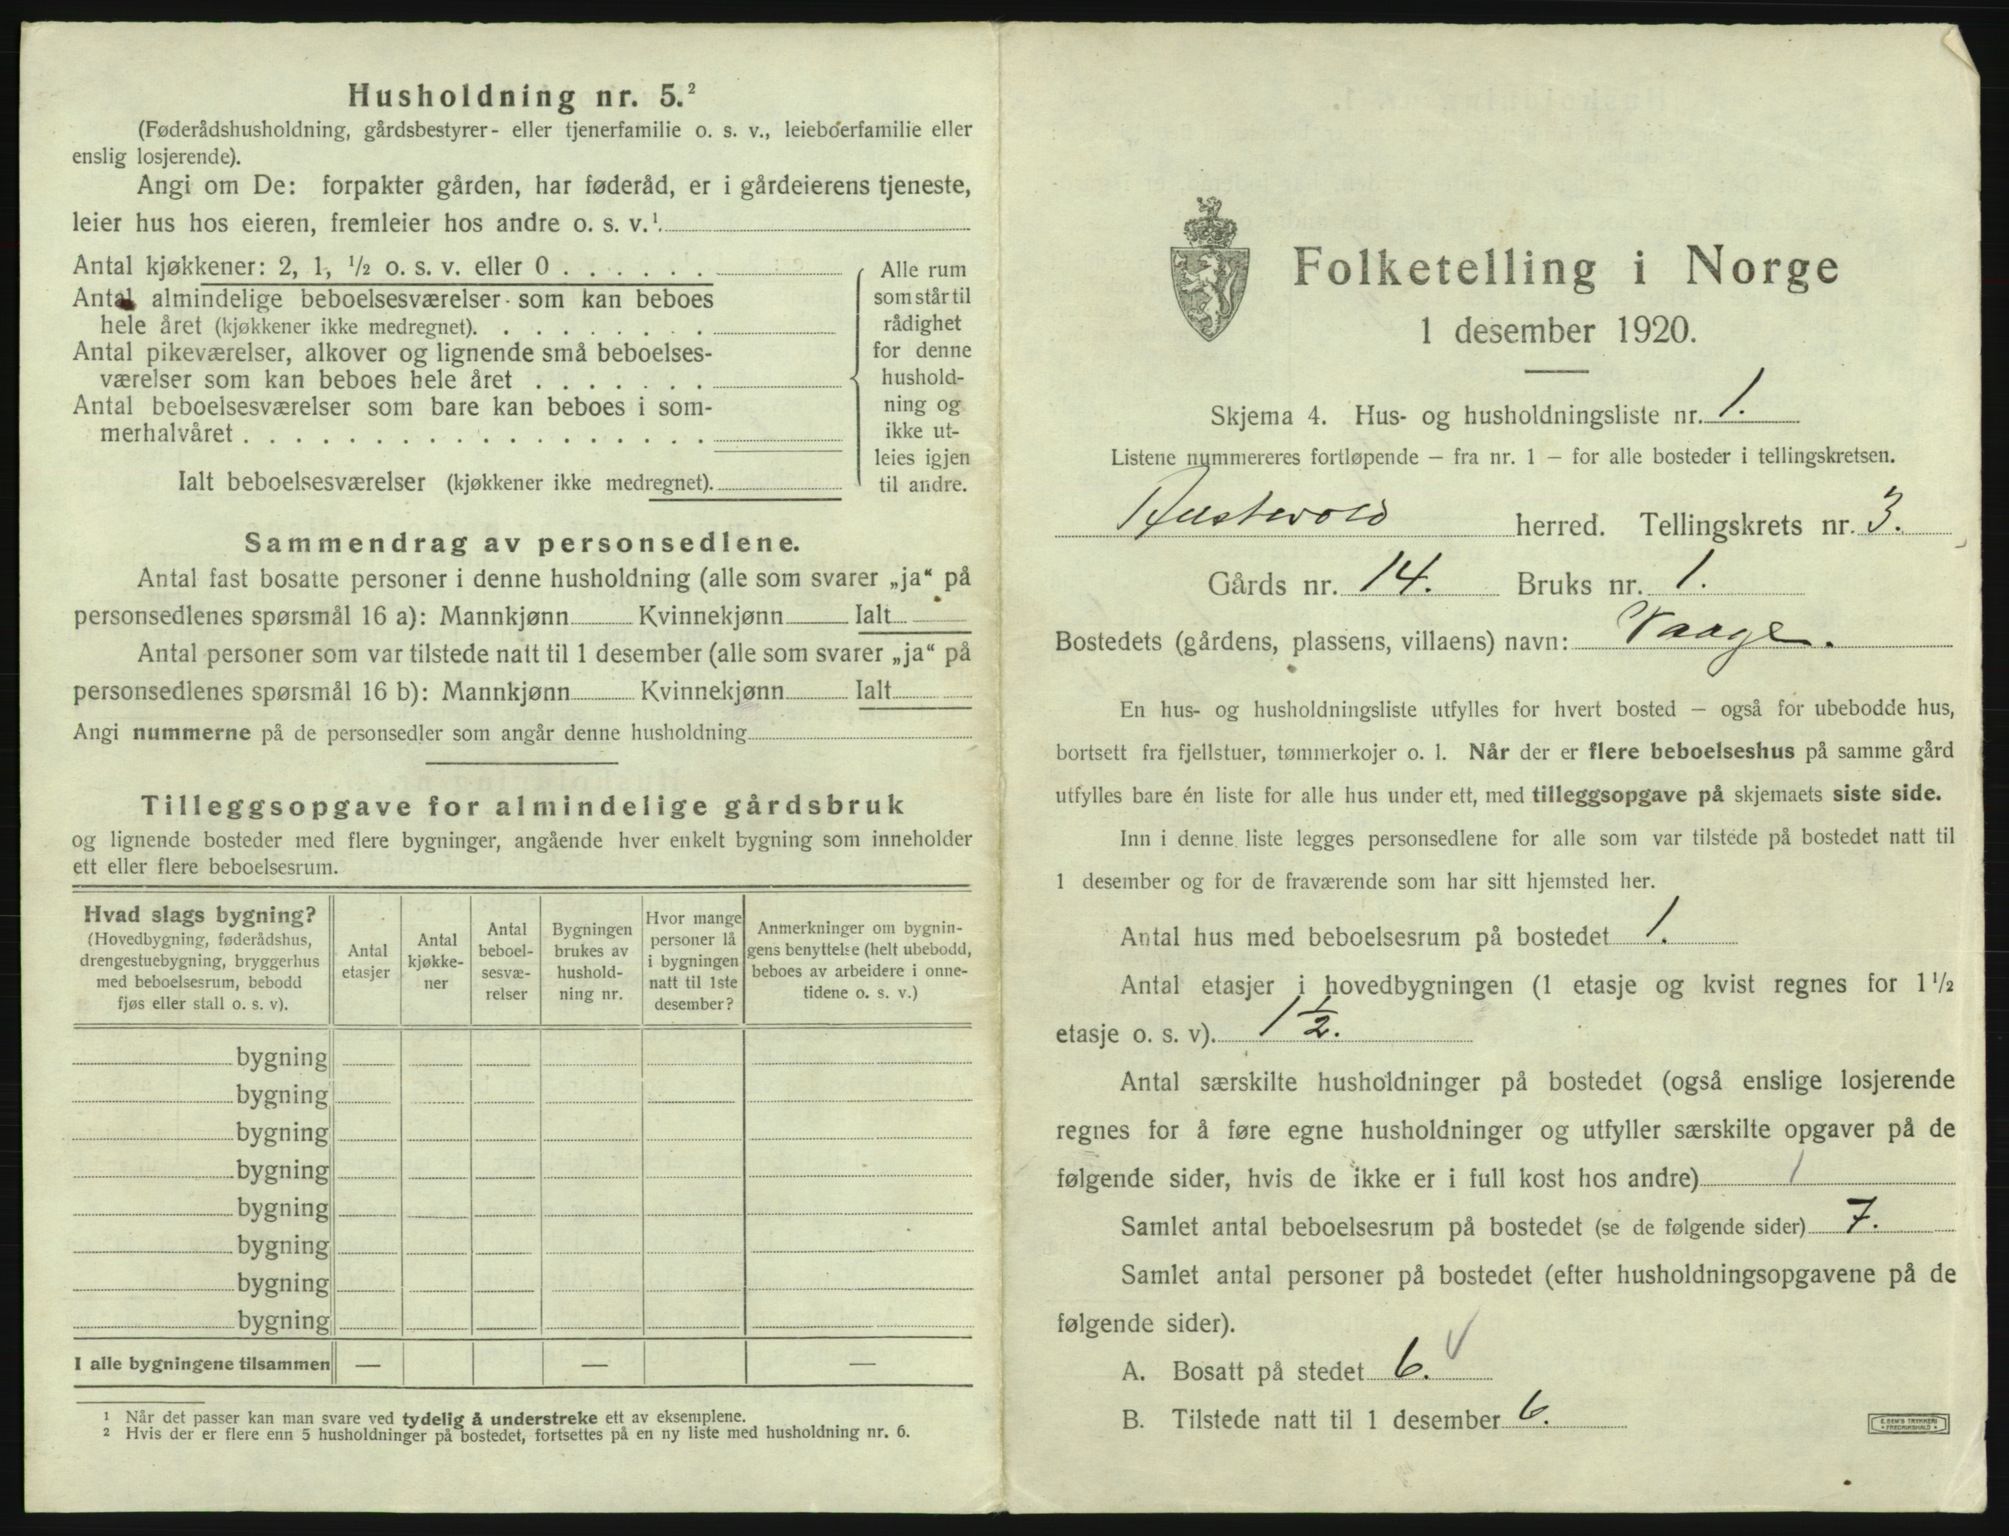 Husholdning nr. 5.²
(Føderådshusholdning, gårdsbestyrer- eller tjenerfamilie o. s. v., leieboerfamilie eller
enslig losjerende).
Angi om De: forpakter gården, har føderåd, er i gårdeierens tjeneste,
leier hus hos eieren, fremleier hos andre o. s. v.¹
Antal kjøkkener: 2, 1, ½ o. s. v. eller 0 . . . . . .
Antal almindelige beboelsesværelser som kan beboes
hele året (kjøkkener ikke medregnet). . . . . . . . .
Antal pikeværelser, alkover og lignende små beboelses-
værelser som kan beboes hele året . . . . . . .
Antal beboelsesværelser som bare kan beboes i som-
merhalvåret . . . . . . . . . . . . . . . . . .
Ialt beboelsesværelser (kjøkkener ikke medregnet).
Alle rum
som står til
rådighet
for denne
hushold-
ning og
ikke ut-
leies igjen
til andre.
Sammendrag av personsedlene.
Antal fast bosatte personer i denne husholdning (alle som svarer „ja“ på
personsedlenes spørsmål 16 a): Mannkjønn Kvinnekjønn Ialt
Antal personer som var tilstede natt til 1 desember (alle som svarer „ja“ på
personsedlenes spørsmål 16 b): Mannkjønn Kvinnekjønn Ialt
Angi nummerne på de personsedler som angår denne husholdning
Tilleggsopgave for almindelige gårdsbruk
og lignende bosteder med flere bygninger, angående hver enkelt bygning som inneholder
ett eller flere beboelsesrum.
Hvad slags bygning?
(Hovedbygning, føderådshus,
drengestuebygning, bryggerhus
med beboelsesrum, bebodd
fjøs eller stall o. s. v).
Antal
etasjer
Antal
kjøkke-
ner
Antal
beboel-
sesvæ-
relser
Bygningen
brukes av
hushold-
ning nr.
Hvor mange
personer lå
i bygningen
natt til 1ste
desember?
Anmerkninger om bygnin-
gens benyttelse (helt ubebodd,
beboes av arbeidere i onne-
tidene o. s. v.)
bygning
bygning
bygning
bygning
bygning
bygning
bygning
bygning
I alle bygningene tilsammen — — —
¹ Når det passer kan man svare ved tydelig å understreke ett av eksemplene.
² Hvis der er flere enn 5 husholdninger på bostedet, fortsettes på en ny liste med husholdning nr. 6.
Folketelling i Norge
1 desember 1920.
Skjema 4. Hus- og husholdningsliste nr. 1.
Listene nummereres fortløpende – fra nr. 1 – for alle bosteder i tellingskretsen.
Austevold herred. Tellingskrets nr. 3.
Gårds nr. 14. Bruks nr. 1.
Bostedets (gårdens, plassens, villaens) navn: Vaage.
En hus- og husholdningsliste utfylles for hvert bosted – også for ubebodde hus,
bortsett fra fjellstuer, tømmerkojer o. l. Når der er flere beboelseshus på samme gård
utfylles bare én liste for alle hus under ett, med tilleggsopgave på skjemaets siste side.
Inn i denne liste legges personsedlene for alle som var tilstede på bostedet natt til
1 desember og for de fraværende som har sitt hjemsted her.
Antal hus med beboelsesrum på bostedet 1.
Antal etasjer i hovedbygningen (1 etasje og kvist regnes for 1½
etasje o. s. v). 1½.
Antal særskilte husholdninger på bostedet (også enslige losjerende
regnes for å føre egne husholdninger og utfyller særskilte opgaver på de
følgende sider, hvis de ikke er i full kost hos andre) 1
Samlet antal beboelsesrum på bostedet (se de følgende sider) 7.
Samlet antal personer på bostedet (efter husholdningsopgavene på de
følgende sider).
A. Bosatt på stedet 6. √
B. Tilstede natt til 1 desember 6.
E. SEM'S TRYKKERI
FREDRIKSHALD